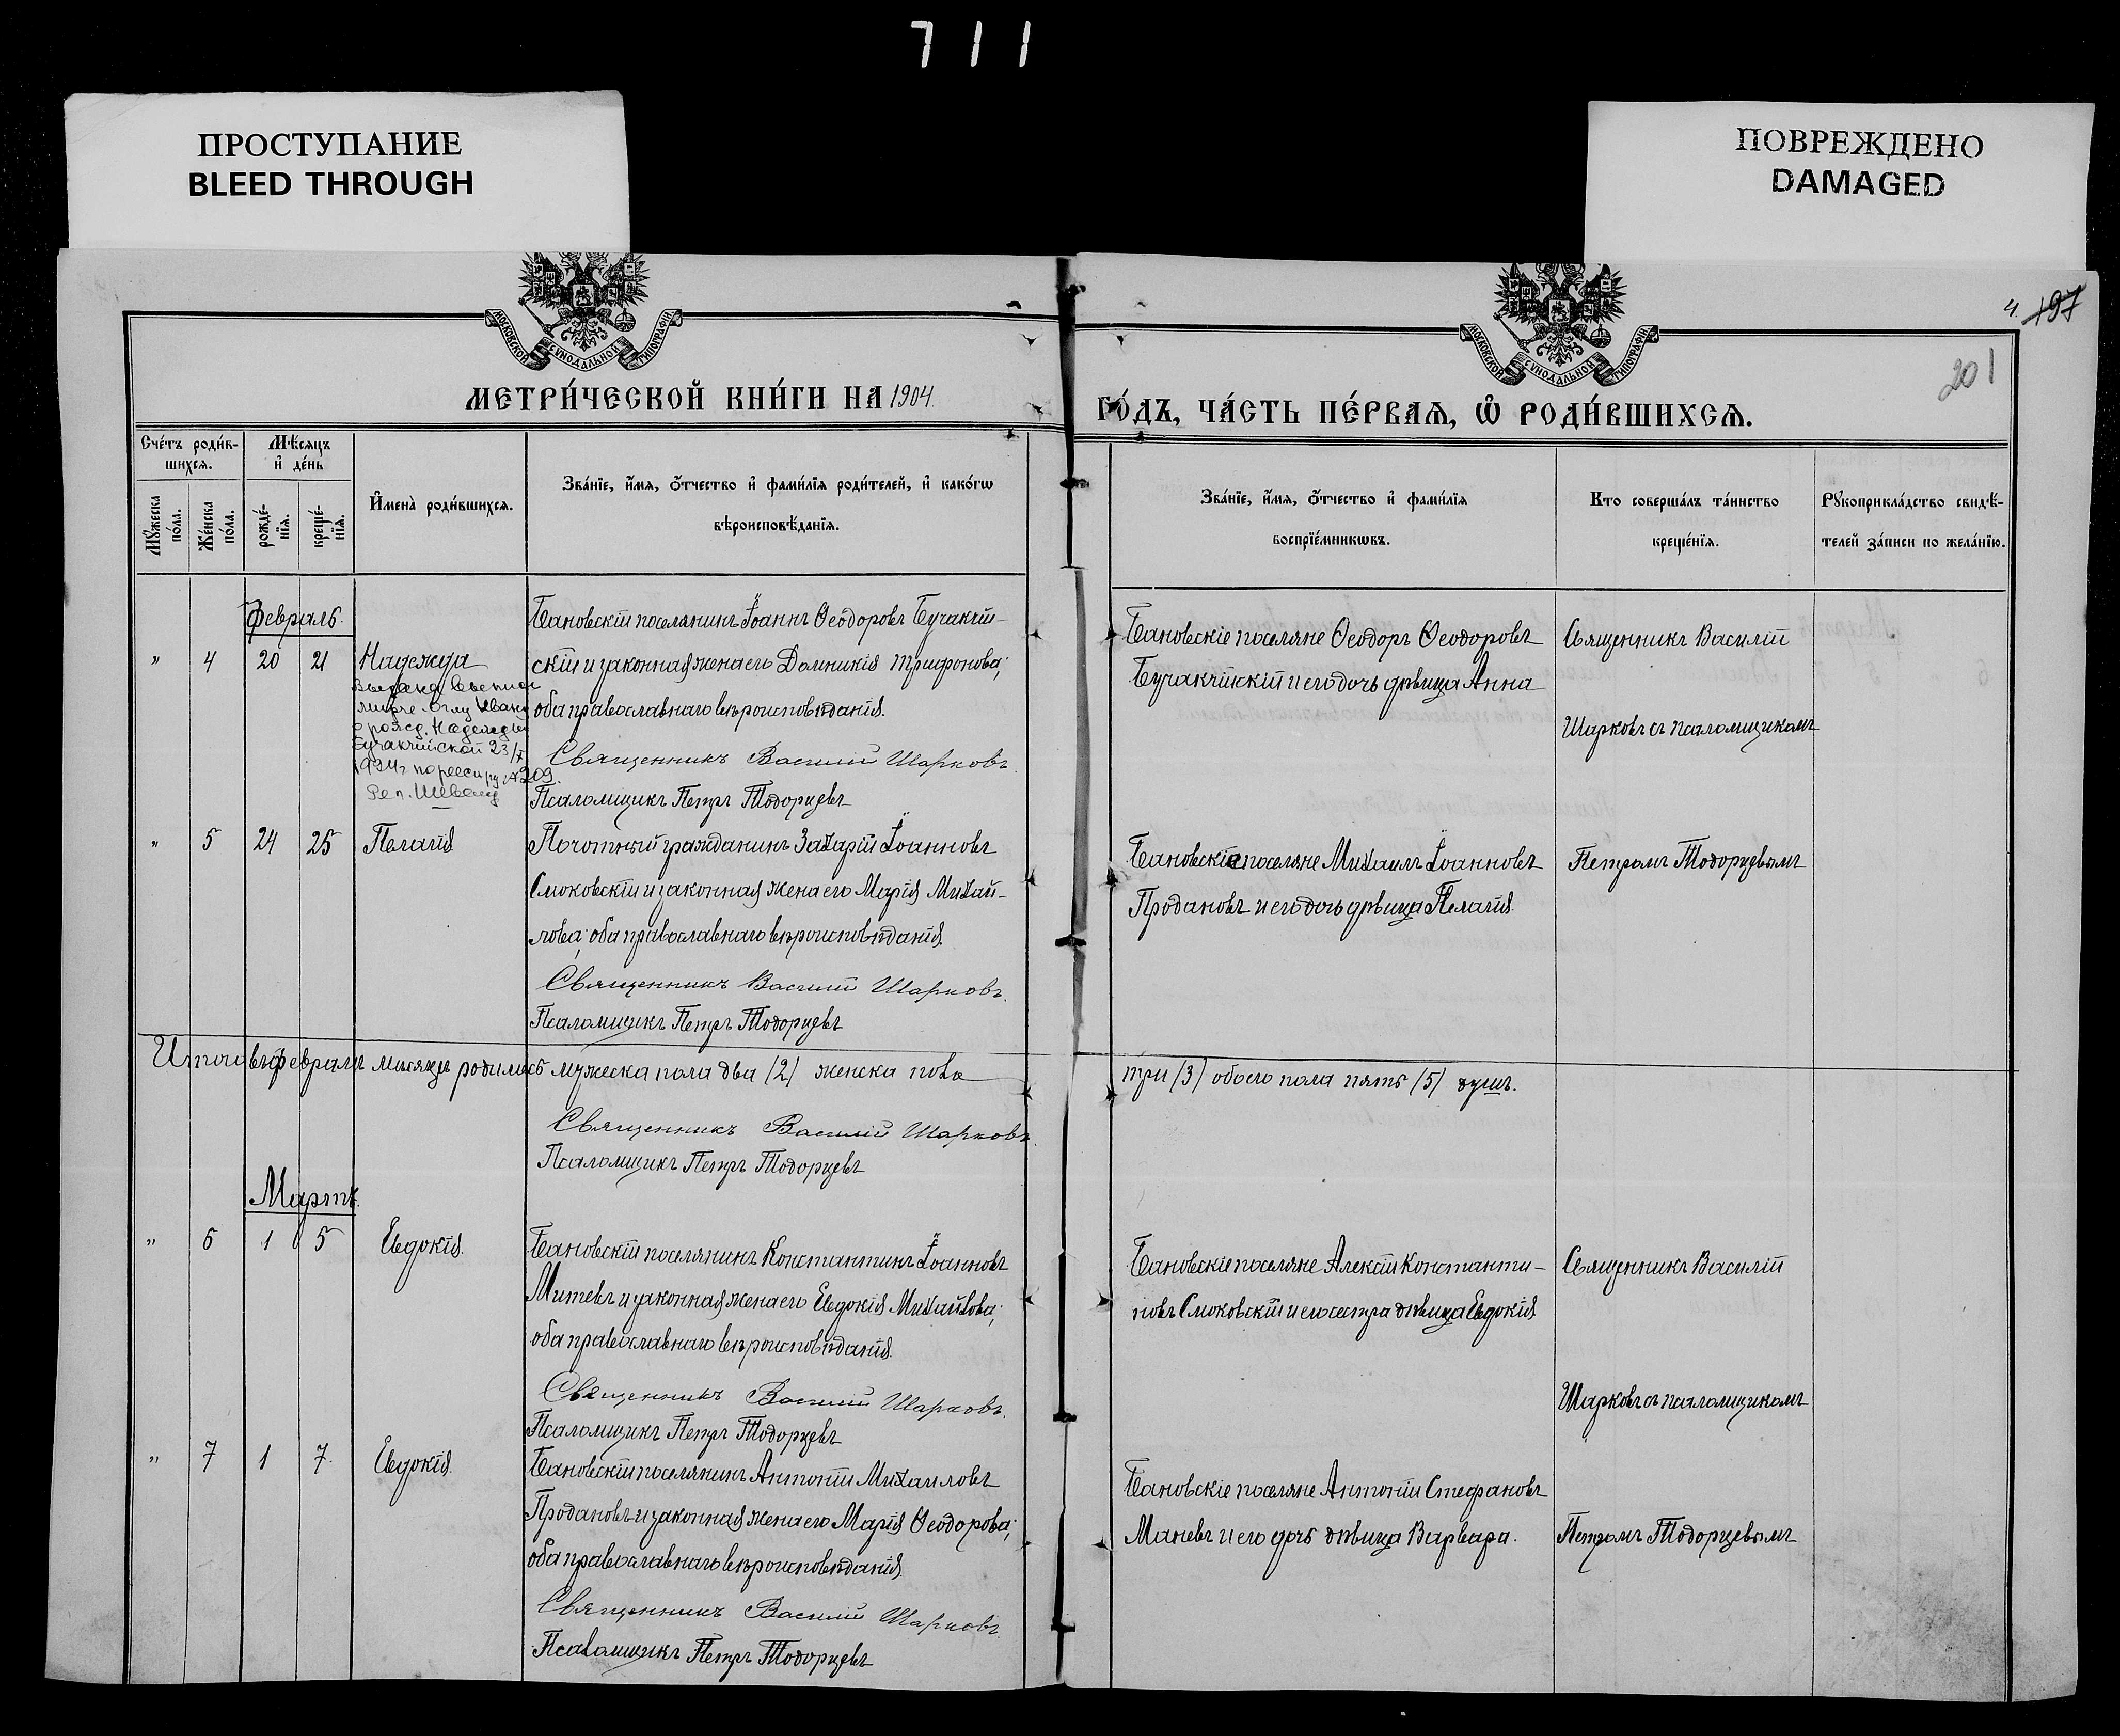 711
ПРОСТУПАНИЕ
BLEED THROUGH
ПОВРЕЖДЕНО
DAMAGED
МОСКОВСКОЙ СѴНОДАЛЬНОЙ ТИПОГРАФІИ
МОСКОВСКОЙ СѴНОДАЛЬНОЙ ТИПОГРАФІИ
4. 197
201
МЕТРИ́ЧЕСКОЙ КНИ́ГИ НА 1904.
ГО́ДЪ, ЧА́СТЬ ПЕ́РВАѦ, Ѡ҆ РОДИ́ВШИХСѦ.
Сче́тъ роди́в-
шихсѧ.
Мѣ́сѧцъ
и҆ де́нь
Мꙋ́жеска
по́ла.
Же́нска
по́ла.
рожде́-
нїѧ.
креще́-
нїѧ.
И҆мена̀ роди́вшихсѧ.
Зва́нїе, и҆́мѧ, ѻ҆́тчество и҆ фами́лїѧ роди́телей, и҆ како́гѡ
вѣроисповѣ́данїѧ.
Зва́нїе, и҆́мѧ, ѻ҆́тчество и҆ фами́лїѧ
воспрїе́мникѡвъ.
Кто соверша́лъ та́инство
креще́нїѧ.
Рꙋкоприкла́дство свидѣ́-
телей за́писи по жела́нїю.
Февраль.
" 4 20 21 Надежда
Бановскій поселянинъ Іоаннъ Ѳеодоровъ Бучакчій-
скій и законная жена его Домникія Трифонова;
оба православнаго вѣроисповѣданія.
Священникъ Василій Шарковъ.
Псаломщикъ Петръ Тодорцевъ
Бановскіе поселяне Ѳеодоръ Ѳеодоровъ
Бучакчійскій и его дочь дѣвица Анна
Священникъ Василій
Шарковъ съ псаломщикомъ
Иван
о рожд. Надежды
Бучакчийской 23/X
209.
" 5 24 25 Пелагія
Почотный гражданинъ Захарій Іоанновъ
Смоковскій и законная жена его Марія Михай-
лова; оба православнаго вѣроисповѣданія.
Священникъ Василій Шарковъ.
Псаломщикъ Петръ Тодорцевъ
Бановскіе поселяне Михаилъ Іоанновъ
Продановъ и его дочь дѣвица Пелагія.
Петромъ Тодорцевымъ
Итого въ февралѣ мѣсяцѣ родилось мужеска пола два (2) женска пола
три (3) обоего пола пять (5) душъ.
Священникъ Василій Шарковъ.
Псаломщикъ Петръ Тодорцевъ
Мартъ.
" 6 1 5 Евдокія.
Бановскій поселянинъ Константинъ Іоанновъ
Митевъ и законная жена его Евдокія Михайлова;
оба православнаго вѣроисповѣданія.
Священникъ Василій Шарковъ.
Псаломщикъ Петръ Тодорцевъ
Бановскіе поселяне Алексій Константи-
новъ Смоковскій и его сестра дѣвица Евдокія
Священникъ Василій
Шарковъ съ псаломщикомъ
" 7 1 7. Евдокія.
Бановскій поселянинъ Антоній Михаиловъ
Продановъ и законная жена его Марія Ѳеодорова;
оба православнаго вѣроисповѣданія.
Священникъ Василій Шарковъ
Псаломщикъ Петръ Тодорцевъ
Бановскіе поселяне Антоній Стефановъ
Маневъ и его дочь дѣвица Варвара.
Петромъ Тодорцевымъ